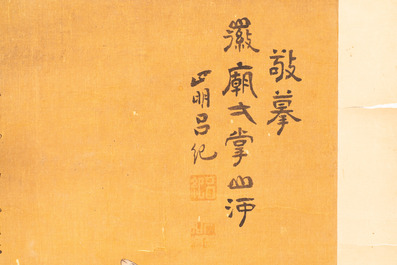 敬摹
徽廟文掌山河
四明呂紀